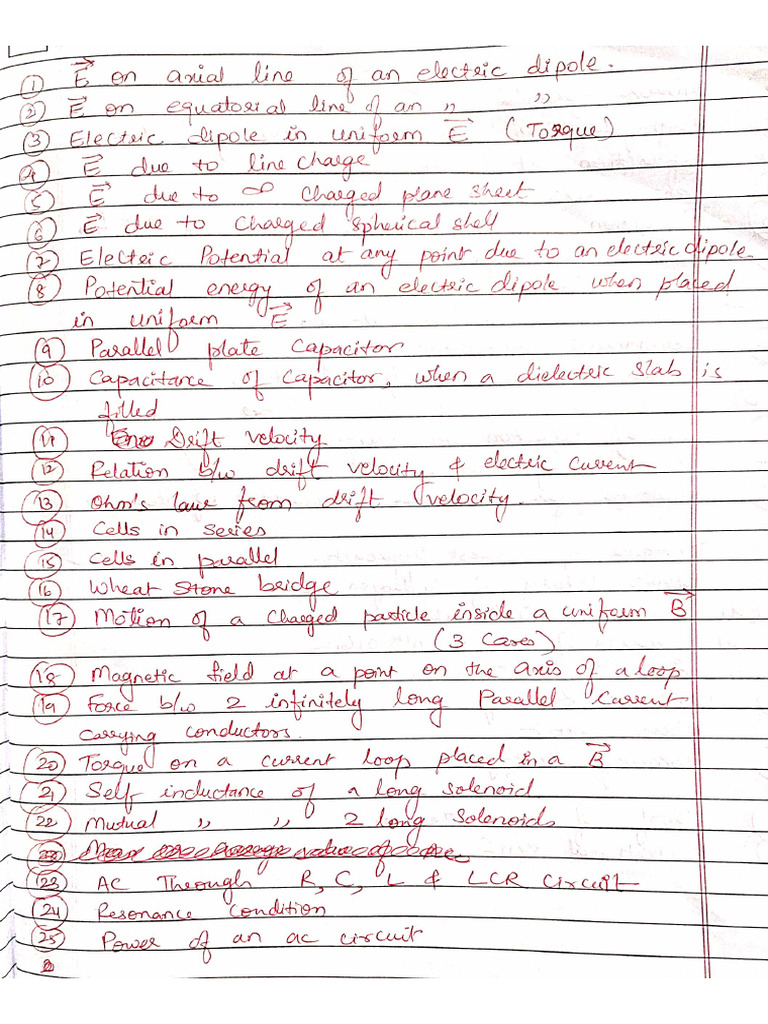 ① E⃗ on axial line of an electric dipole.
② E⃗ on equatorial line of an " "
③ Electric dipole in uniform E⃗ (Torque)
④ E⃗ due to line charge
⑤ E⃗ due to ∞ charged plane sheet
⑥ E⃗ due to charged spherical shell
⑦ Electric Potential at any point due to an electric dipole.
⑧ Potential energy of an electric dipole when placed
in uniform E⃗.
⑨ Parallel plate capacitor
⑩ Capacitance of capacitor, when a dielectric slab is
filled
⑪ Drift velocity
⑫ Relation b/w drift velocity & electric current
⑬ Ohm's law from drift velocity.
⑭ Cells in series
⑮ Cells in parallel
⑯ Wheat stone bridge
⑰ Motion of a charged particle inside a uniform B⃗
(3 Cases)
⑱ Magnetic field at a point on the axis of a loop
⑲ Force b/w 2 infinitely long Parallel Current
carrying conductors.
⑳ Torque on a current loop placed in a B⃗
㉑ Self inductance of a long solenoid
㉒ Mutual " " 2 long Solenoids
㉓ AC Through R, C, L & LCR circuit
㉔ Resonance condition
㉕ Power of an ac circuit